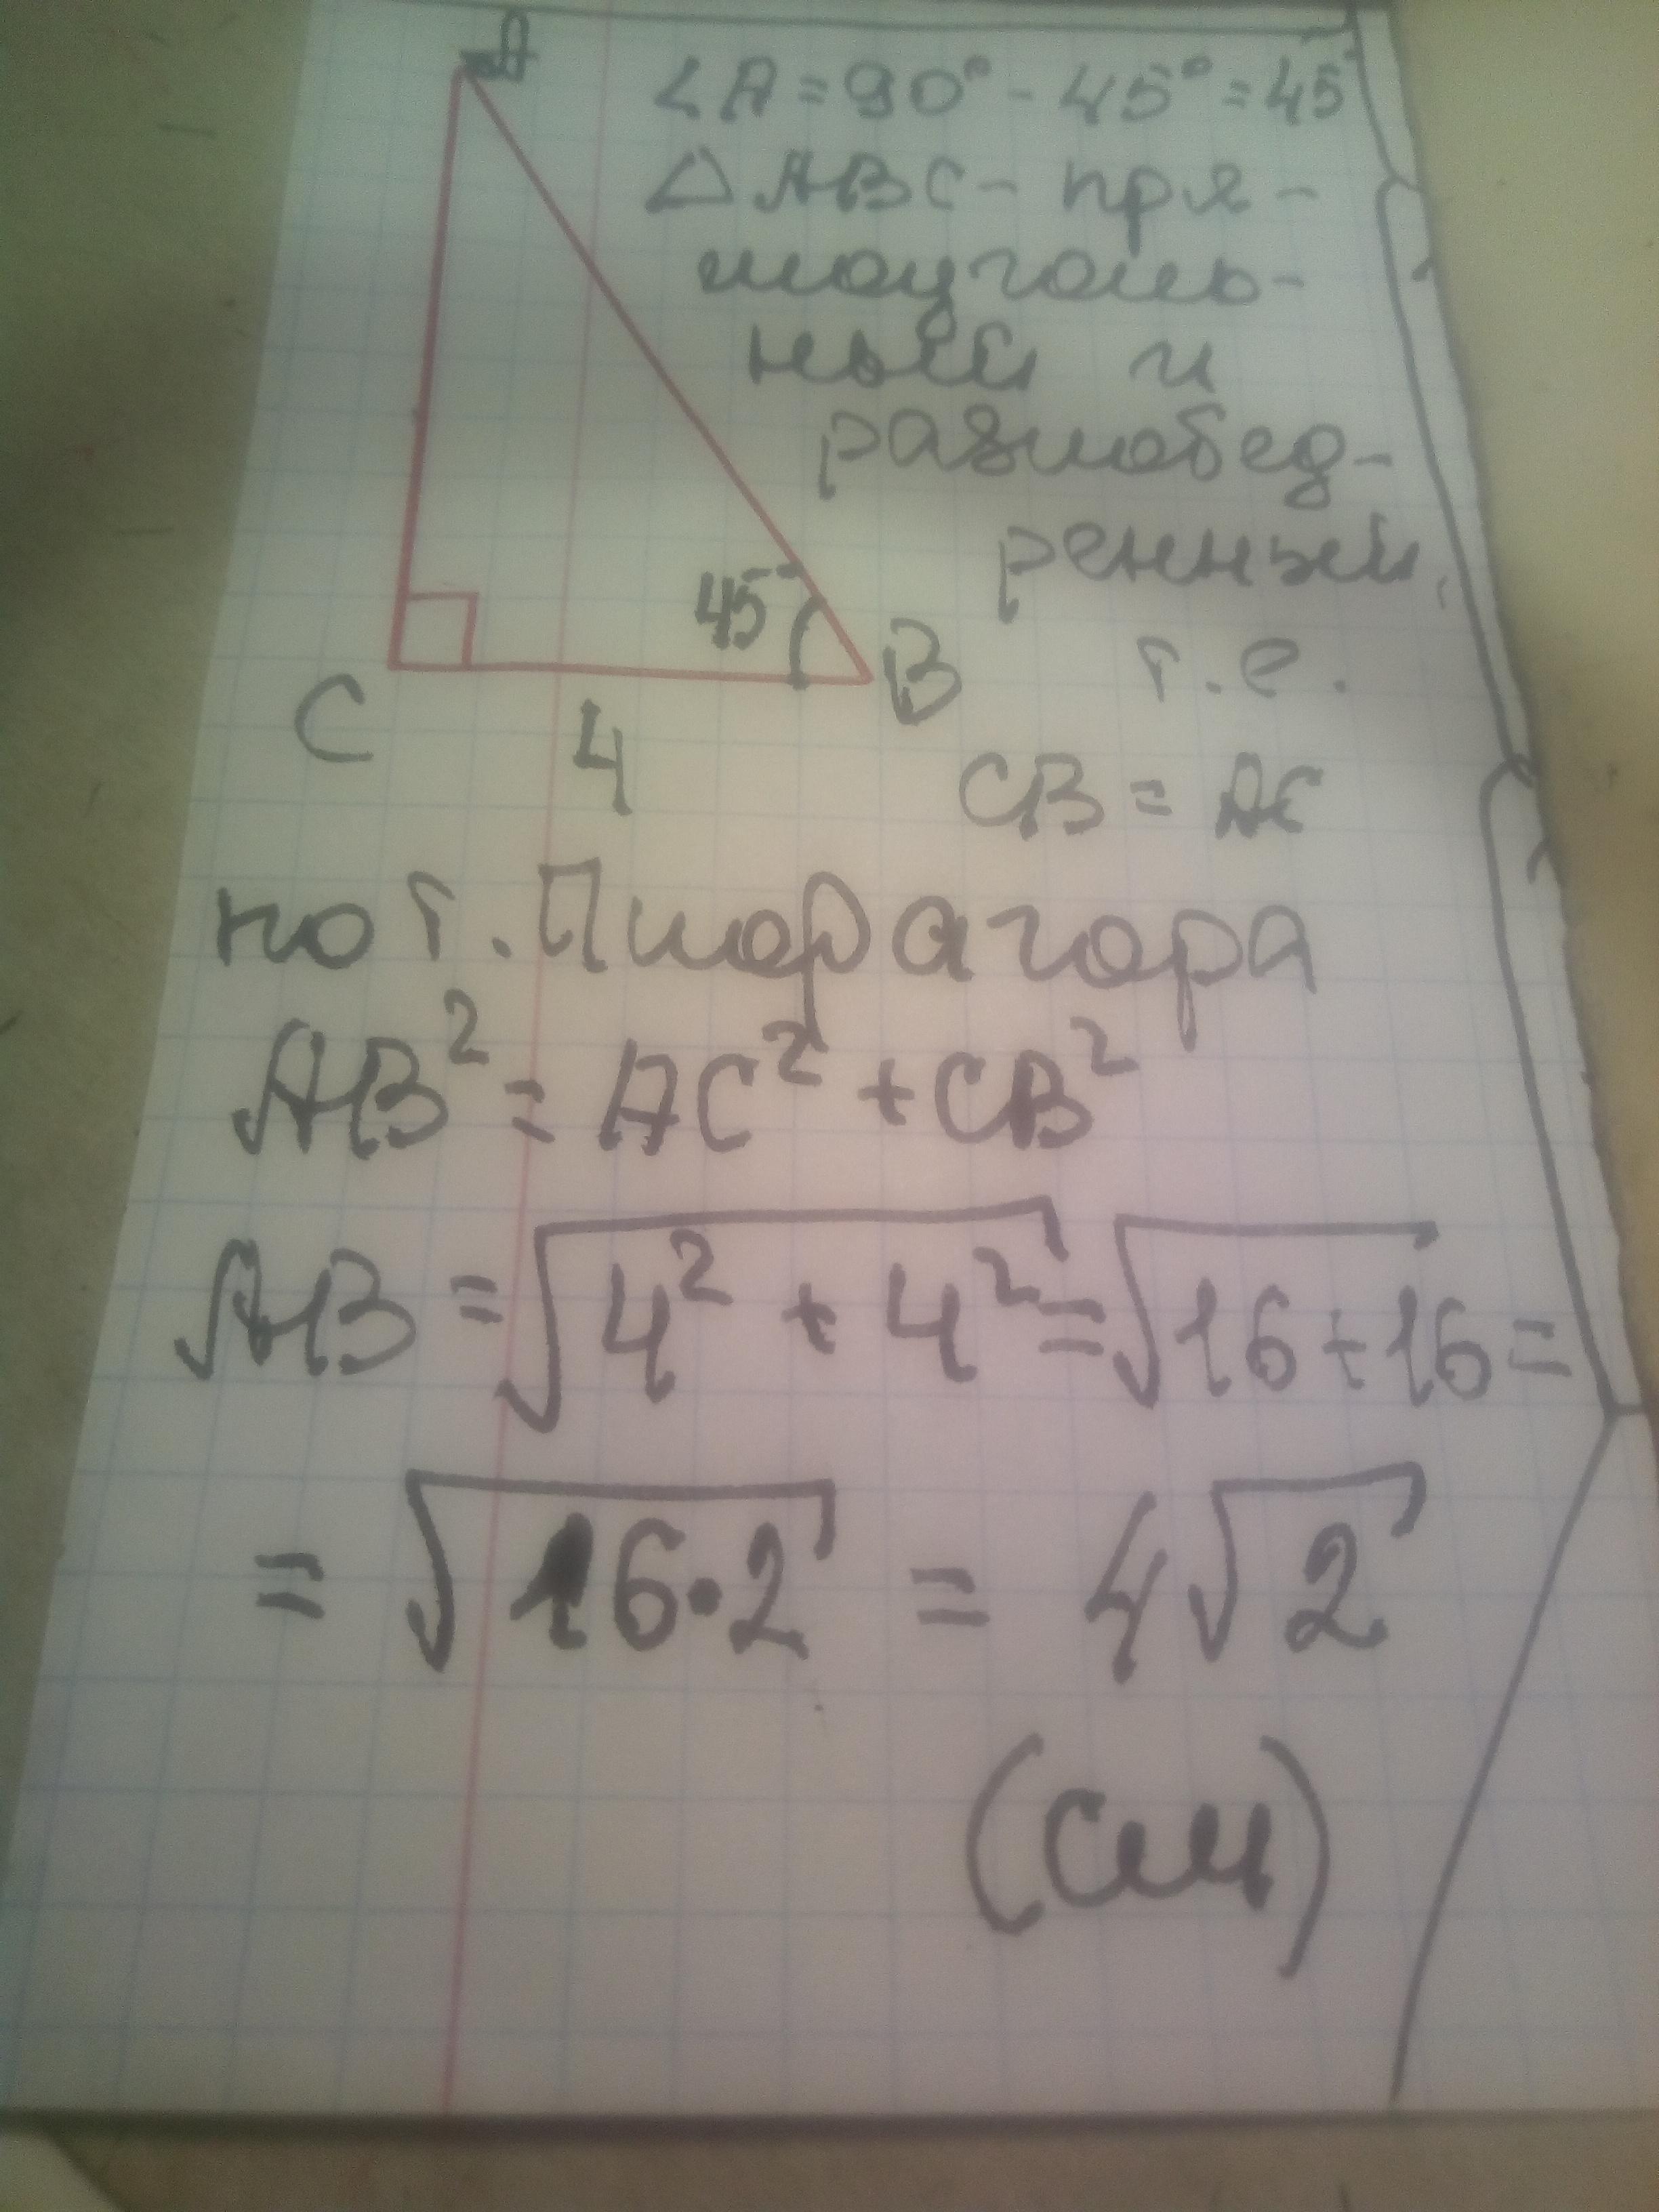 A
∠A = 90° - 45° = 45
△ABC - пря-
моуголь-
ный и
равнобед-
ренный,
45°
B
т.е.
C
4
CB = AC
по т. Пифагора
AB² = AC² + CB²
AB = √4² + 4² = √16 + 16 =
= √16·2 = 4√2
(см)